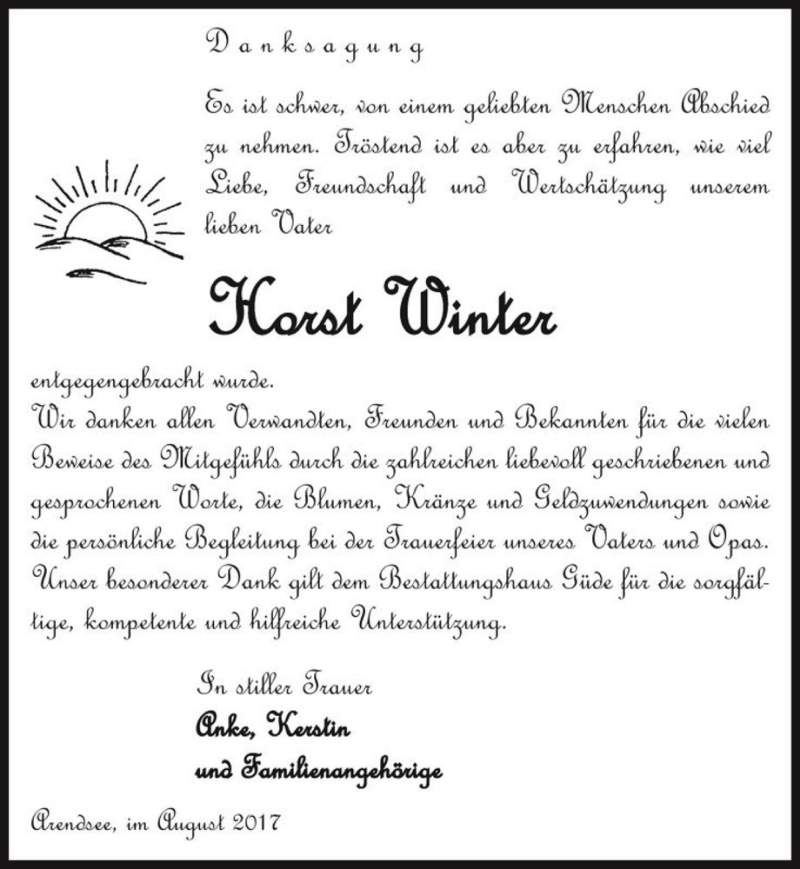 Danksagung
Es ist schwer, von einem geliebten Menschen Abschied
zu nehmen. Tröstend ist es aber zu erfahren, wie viel
Liebe, Freundschaft und Wertschätzung unserem
lieben Vater
Horst Winter
entgegengebracht wurde.
Wir danken allen Verwandten, Freunden und Bekannten für die vielen
Beweise des Mitgefühls durch die zahlreichen liebevoll geschriebenen und
gesprochenen Worte, die Blumen, Kränze und Geldzuwendungen sowie
die persönliche Begleitung bei der Trauerfeier unseres Vaters und Opas.
Unser besonderer Dank gilt dem Bestattungshaus Güde für die sorgfäl-
tige, kompetente und hilfreiche Unterstützung.
In stiller Trauer
Anke, Kerstin
und Familienangehörige
Arendsee, im August 2017